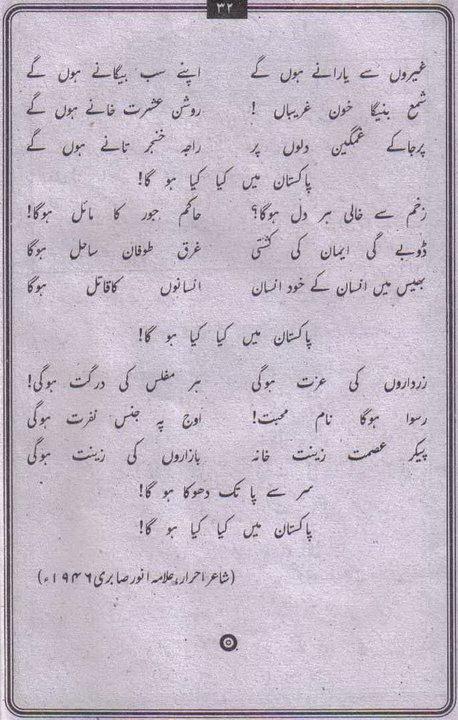 ۳۲
غیروں سے یارانے ہوں گے اپنے سب بیگانے ہوں گے
شمع بنیگا خون غریباں ! روشن عشرت خانے ہوں گے
پرجا کے غمگین دلوں پر راجہ خنجر تانے ہوں گے
پاکستان میں کیا کیا ہو گا!
زخم سے خالی ہر دل ہوگا؟ حاکم جور کا مائل ہوگا!
ڈوبے گی ایمان کی کشتی غرق طوفان ساحل ہوگا
بھیس میں انسان کے خود انسان انسانوں کا قاتل ہوگا
پاکستان میں کیا کیا ہو گا!
زرداروں کی عزت ہوگی ہر مفلس کی درگت ہوگی!
رسوا ہوگا نام محبت! اوج پہ جنس نفرت ہوگی
پیکر عصمت زینت خانہ بازاروں کی زینت ہوگی
سر سے پا تک دھوکا ہو گا!
پاکستان میں کیا کیا ہو گا!
(شاعر احرار، علامہ انور صابری ۱۹۴۶ء)